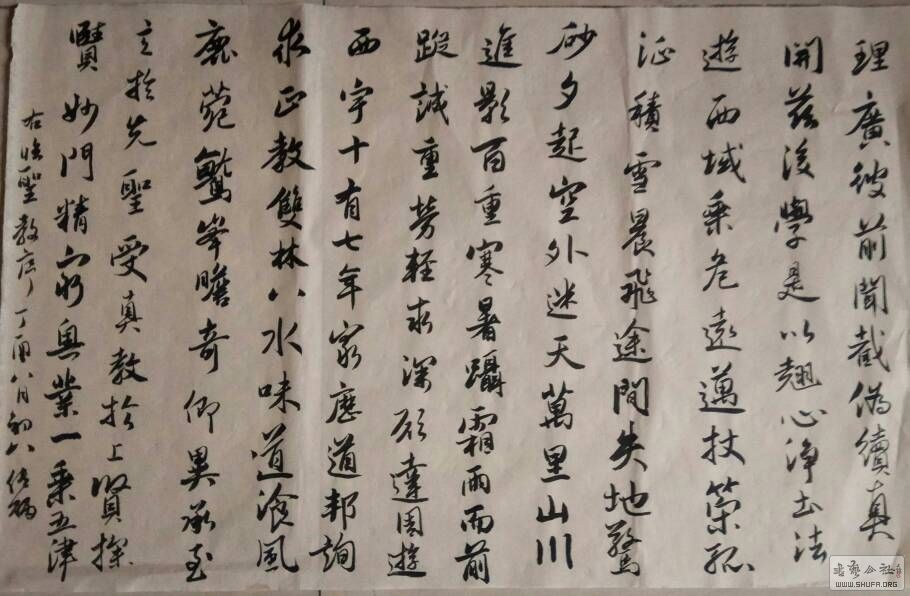 理廣彼前聞截偽續真
開茲後學是以翹心淨土法
遊西域乘危遠邁杖策孤
征積雪晨飛途間失地驚
砂夕起空外迷天萬里山川
進影百重寒暑躡霜雨而前
蹤誠重勞輕求深願達周遊
西宇十有七年窮歷道邦詢
求正教雙林八水味道湌風
鹿菀鷲峯瞻奇仰異承至
言於先聖受真教於上賢探
賾妙門精窮奧業一乘五津
右臨聖教序丁酉八月初六
WWW.SHUFA.ORG